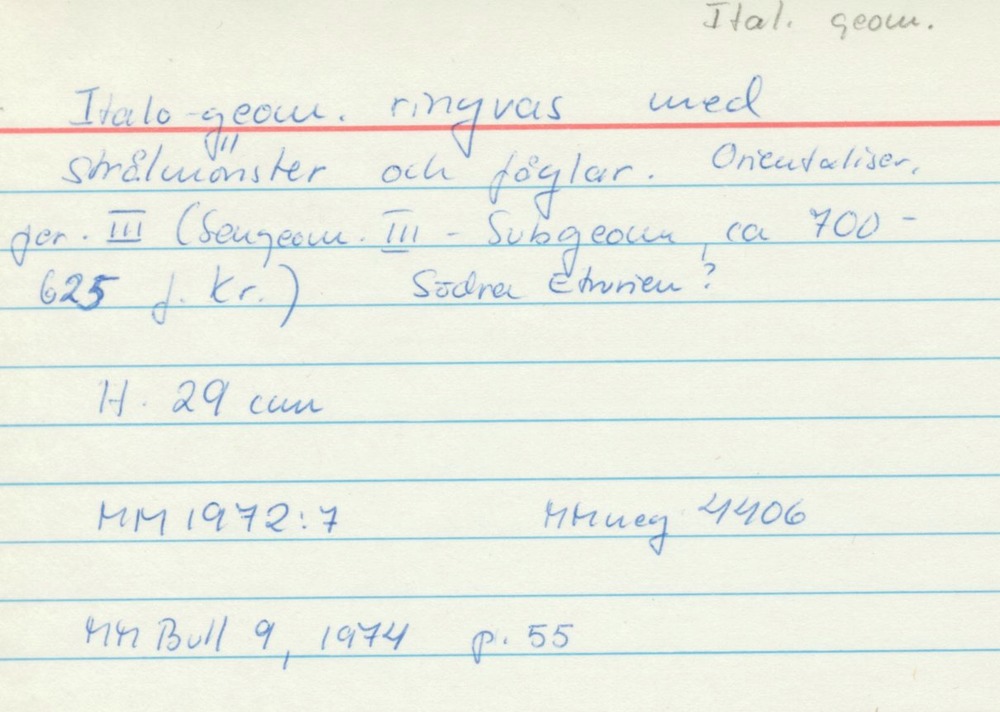 Ital. geom.
Italo-geom. ringvas med
strålmönster och fåglar. Orientaliser.
per. III (Sengeom. III - Subgeom, ca 700-
625 f. Kr.) Södra Etrurien?
H. 29 cm
MM 1972:7 MMneg 4406
MM Bull 9, 1974 p. 55